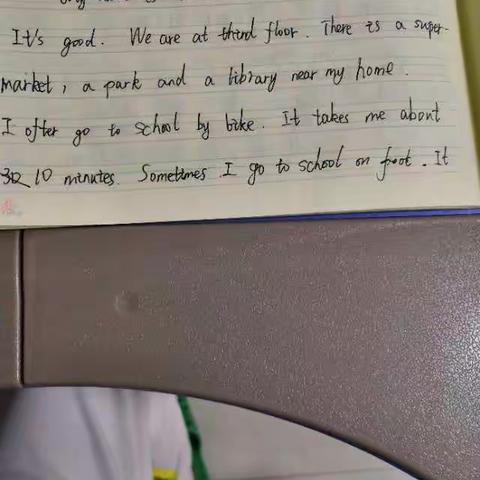 It's good. We are at third floor. There is a super-
market, a park and a library near my home.
I ofter go to school by bike. It takes me about
10 minutes. Sometimes I go to school on foot. It